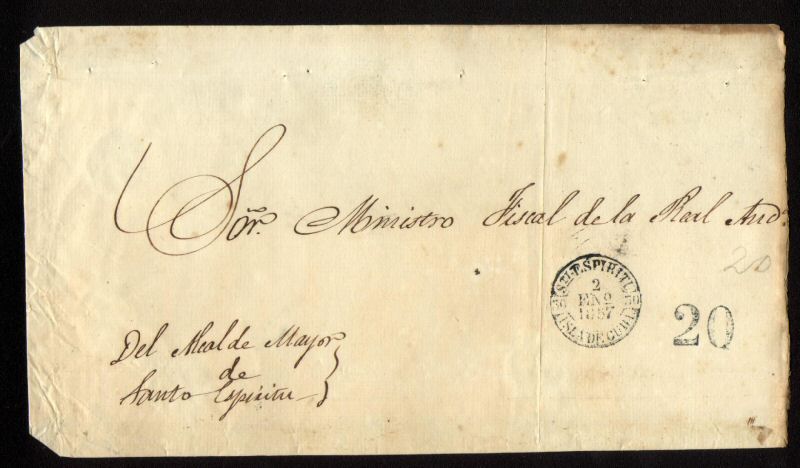 Sor. Ministro Fiscal de la Real Aud.a
20
STI. SPIRITU
2
ENO
1857
ISLA DE CUBA
20
Del Alcalde Mayor
de
Santo Espiritu